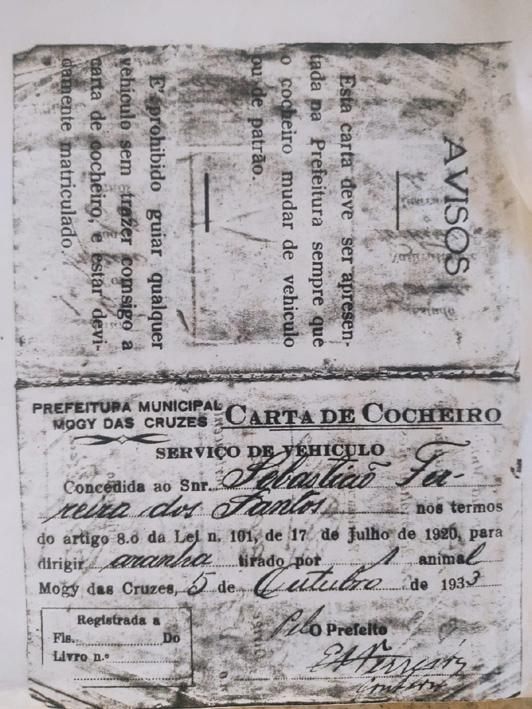 AVISOS
Esta carta deve ser apresen-
tada na Prefeitura sempre que
o cocheiro mudar de vehiculo
ou de patrão.
E' prohibido guiar qualquer
vehiculo sem trazer comsigo a
carta de cocheiro, e estar devi-
damente matriculado.
PREFEITURA MUNICIPAL
MOGY DAS CRUZES
CARTA DE COCHEIRO
SERVIÇO DE VEHICULO
Concedida ao Snr. Sebastião Fer-
reira dos Santos nos termos
do artigo 8.o da Lei n. 101, de 17 de Julho de 1920, para
dirigir aranha tirado por 1 animal
Mogy das Cruzes, 5 de Outubro de 1933
Registrada a
Fls. Do
Livro n.º
Pelo O Prefeito